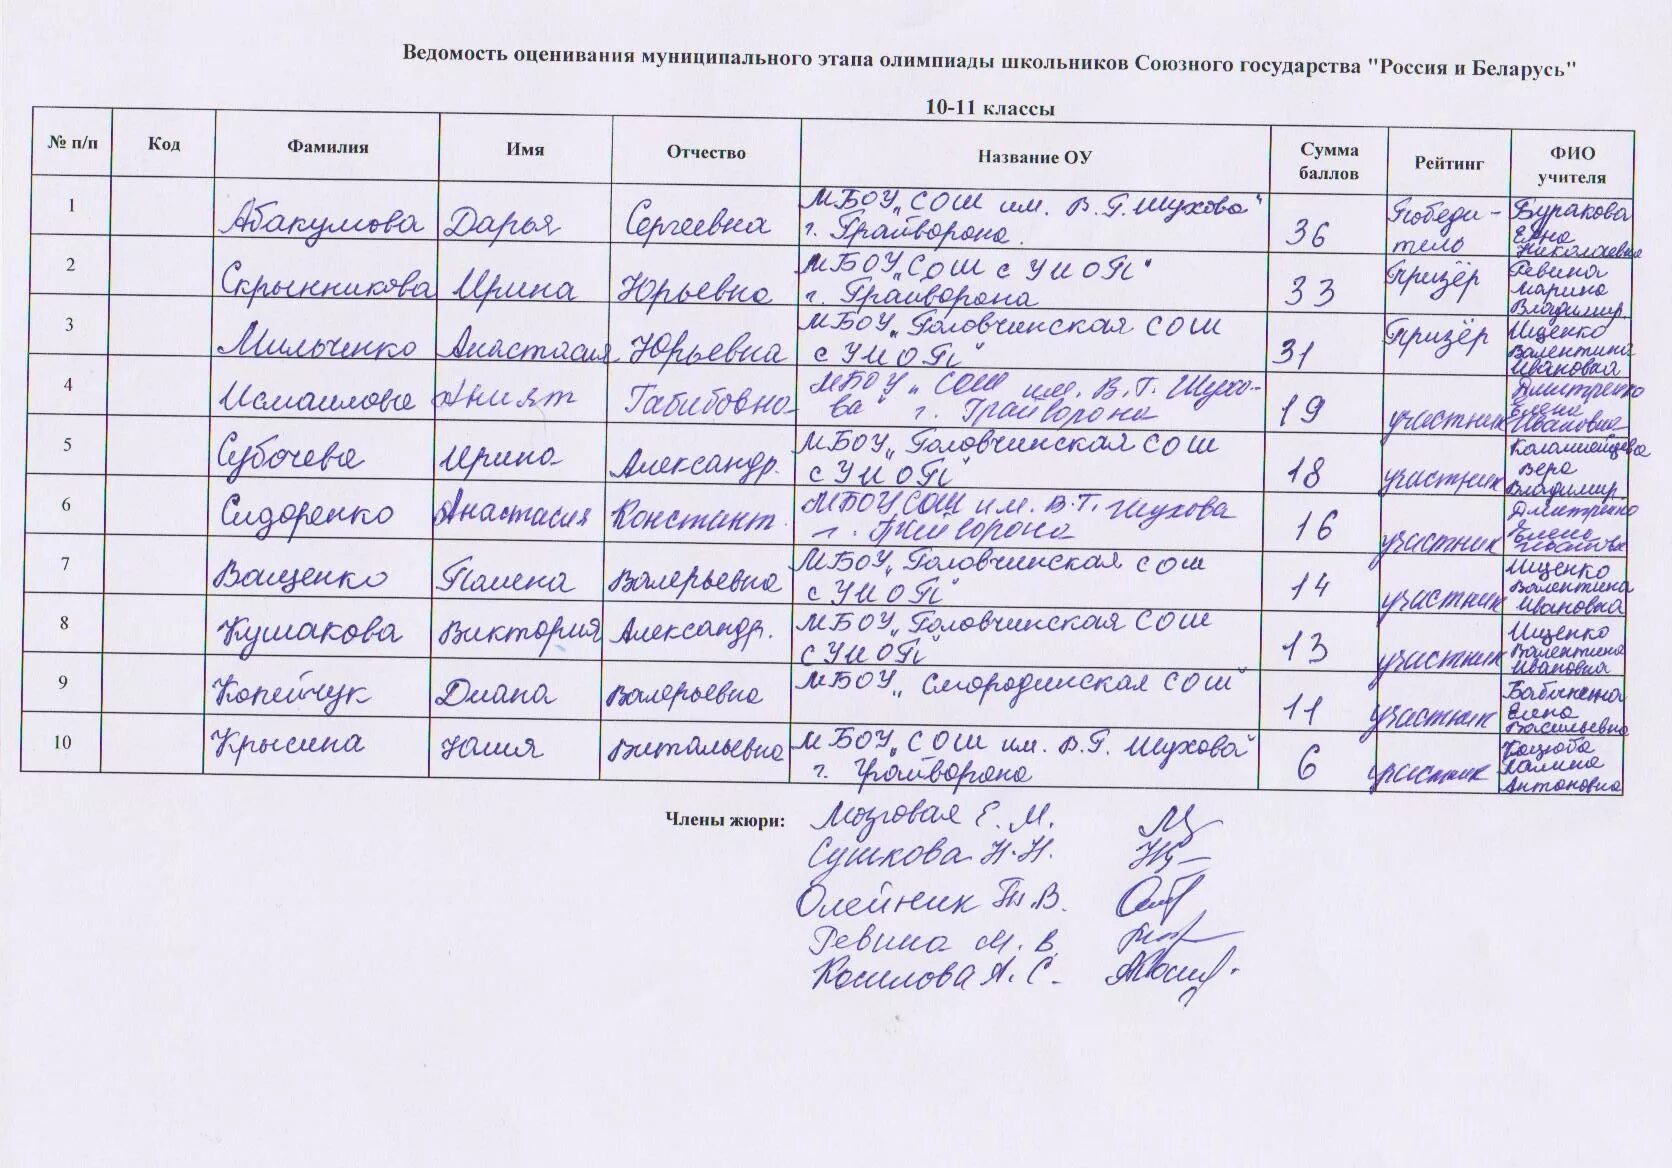 Ведомость оценивания муниципального этапа олимпиады школьников Союзного государства "Россия и Беларусь"
10-11 классы
№ п/п Код Фамилия Имя Отчество Название ОУ Сумма баллов Рейтинг ФИО учителя
1 Абакумова Дарья Сергеевна МБОУ „СОШ им. В.Г. Шухова" г. Грайворона. 36 Победитель Буракова Елена Николаевна
2 Скрынникова Ирина Юрьевна МБОУ „СОШ с УИОП" г. Грайворона 33 Призёр Ревина Марина Владимир.
3 Мильченко Анастасия Юрьевна МБОУ „Головчинская СОШ с УИОП" 31 Призёр Ищенко Валентина Ивановна
4 Исмаилова Габибовна МБОУ „СОШ им. В.Г. Шухова" г. Грайворона 19 участник Дмитренко Елена Ивановна
5 Субочева Ирина Александр. МБОУ „Головчинская СОШ с УИОП" 18 участник Коломыйцева Вера Владимир.
6 Сидоренко Анастасия Констант. МБОУ СОШ им. В.Г. Шухова г. Грайворона 16 участник Дмитренко Елена
7 Ващенко Полина Валерьевна МБОУ „Головчинская СОШ с УИОП" 14 участник Ищенко Валентина Ивановна
8 Кушакова Виктория Александр. МБОУ „Головчинская СОШ с УИОП" 13 участник Ищенко Валентина Ивановна
9 Копейчук Диана Валерьевна МБОУ „Смородинская СОШ" 11 участник Елена Васильевна
10 Крысина Юлия Витальевна МБОУ „СОШ им. В.Г. Шухова" г. Грайворона 6 участник Коцюба Галина Антоновна
Члены жюри: Мозговая Е. М.
Сушкова Н. Н.
Олейник Т. В.
Ревина М. В.
Косилова А. С.